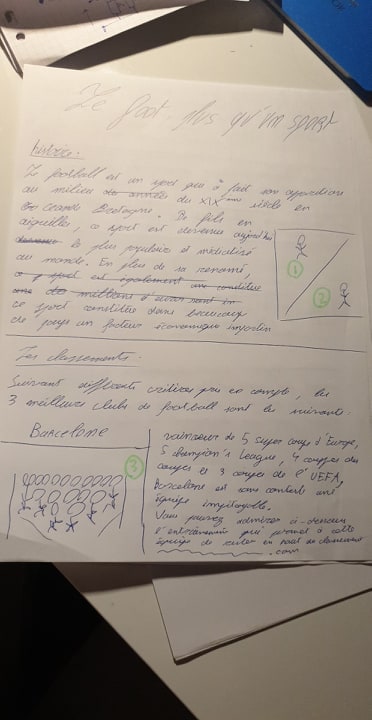 Le foot, plus qu'un sport
histoire:
Le football est un sport qui a fait son apparition
au milieu des années du XIXème siècle en
Grande Bretagne. De fils en
aiguilles, ce sport est devenu aujourd'hui
le plus populaire et médiatisé
au monde. En plus de sa renommé,
ce sport est également une
des millions
ce sport constitue dans beaucoup
de pays un facteur économique important
1
2
Les classements:
Suivant différents critères pris en compte, les
3 meilleurs clubs de football sont les suivants:
Barcelone
3
vainqueur de 5 super coupe d'Europe,
5 champion's League, 4 coupes des
coupes et 3 coupes de l'UEFA,
Barcelone est sans conteste une
équipe impitoyable.
Vous pouvez admirer ci-dessous
l'entrainement qui permet à cette
équipe de rester en haut du classement
.com